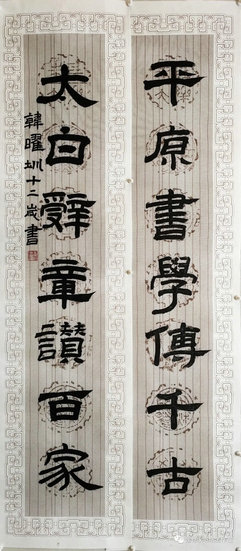 平原書學傳千古
太白辭章讚百家
韓曜圳十二歲書